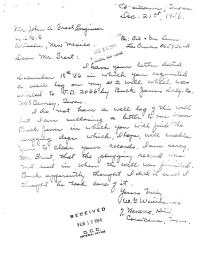 Corsicana, Texas
Dec. 21st, 1956.
Mr. John A. Frost, Engineer
U.S.G.S.
Artesia, New Mexico
Re: Oil & Gas Lease
Las Cruces 065726-A
Dear Mr. Frost:
I have your letter dated
December 18th 56 in which you requested
a well log on my #2 well which was
drilled to T.D. 2066 by Buck Jones Drlg. Co.
McCamey, Texas.
I do not have a well log of this well
but I am enclosing a letter to me from
Buck Jones in which you will find the
plugging dope which I hope will enable
you to clear your records. I am sorry,
Mr. Frost, that the plugging record was
not sent in when the well was finished.
Buck apparently thought I did it and I
thought he took care of it.
Yours truly,
Corsicana, Texas.
RECEIVED
FEB 1964
O. C. C.